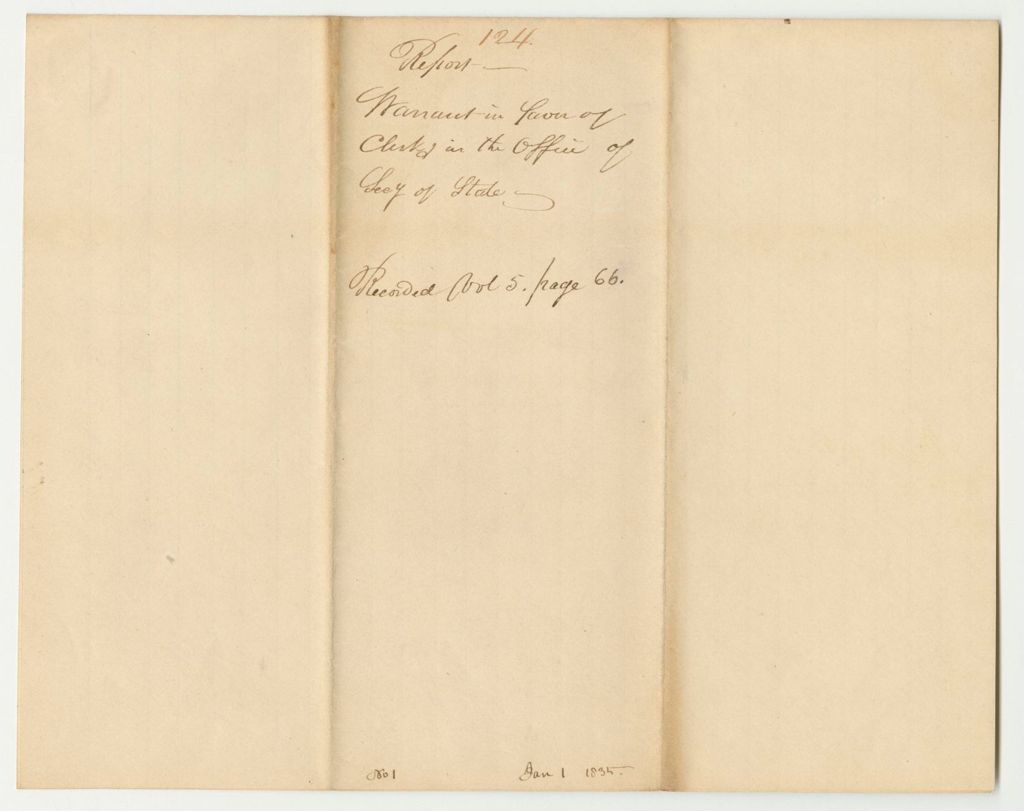 124.
Report —
Warrant in favor of
Clerks in the Office of
Secy of State —
Recorded Vol 5. page 66.
No 1 Jan 1 1835